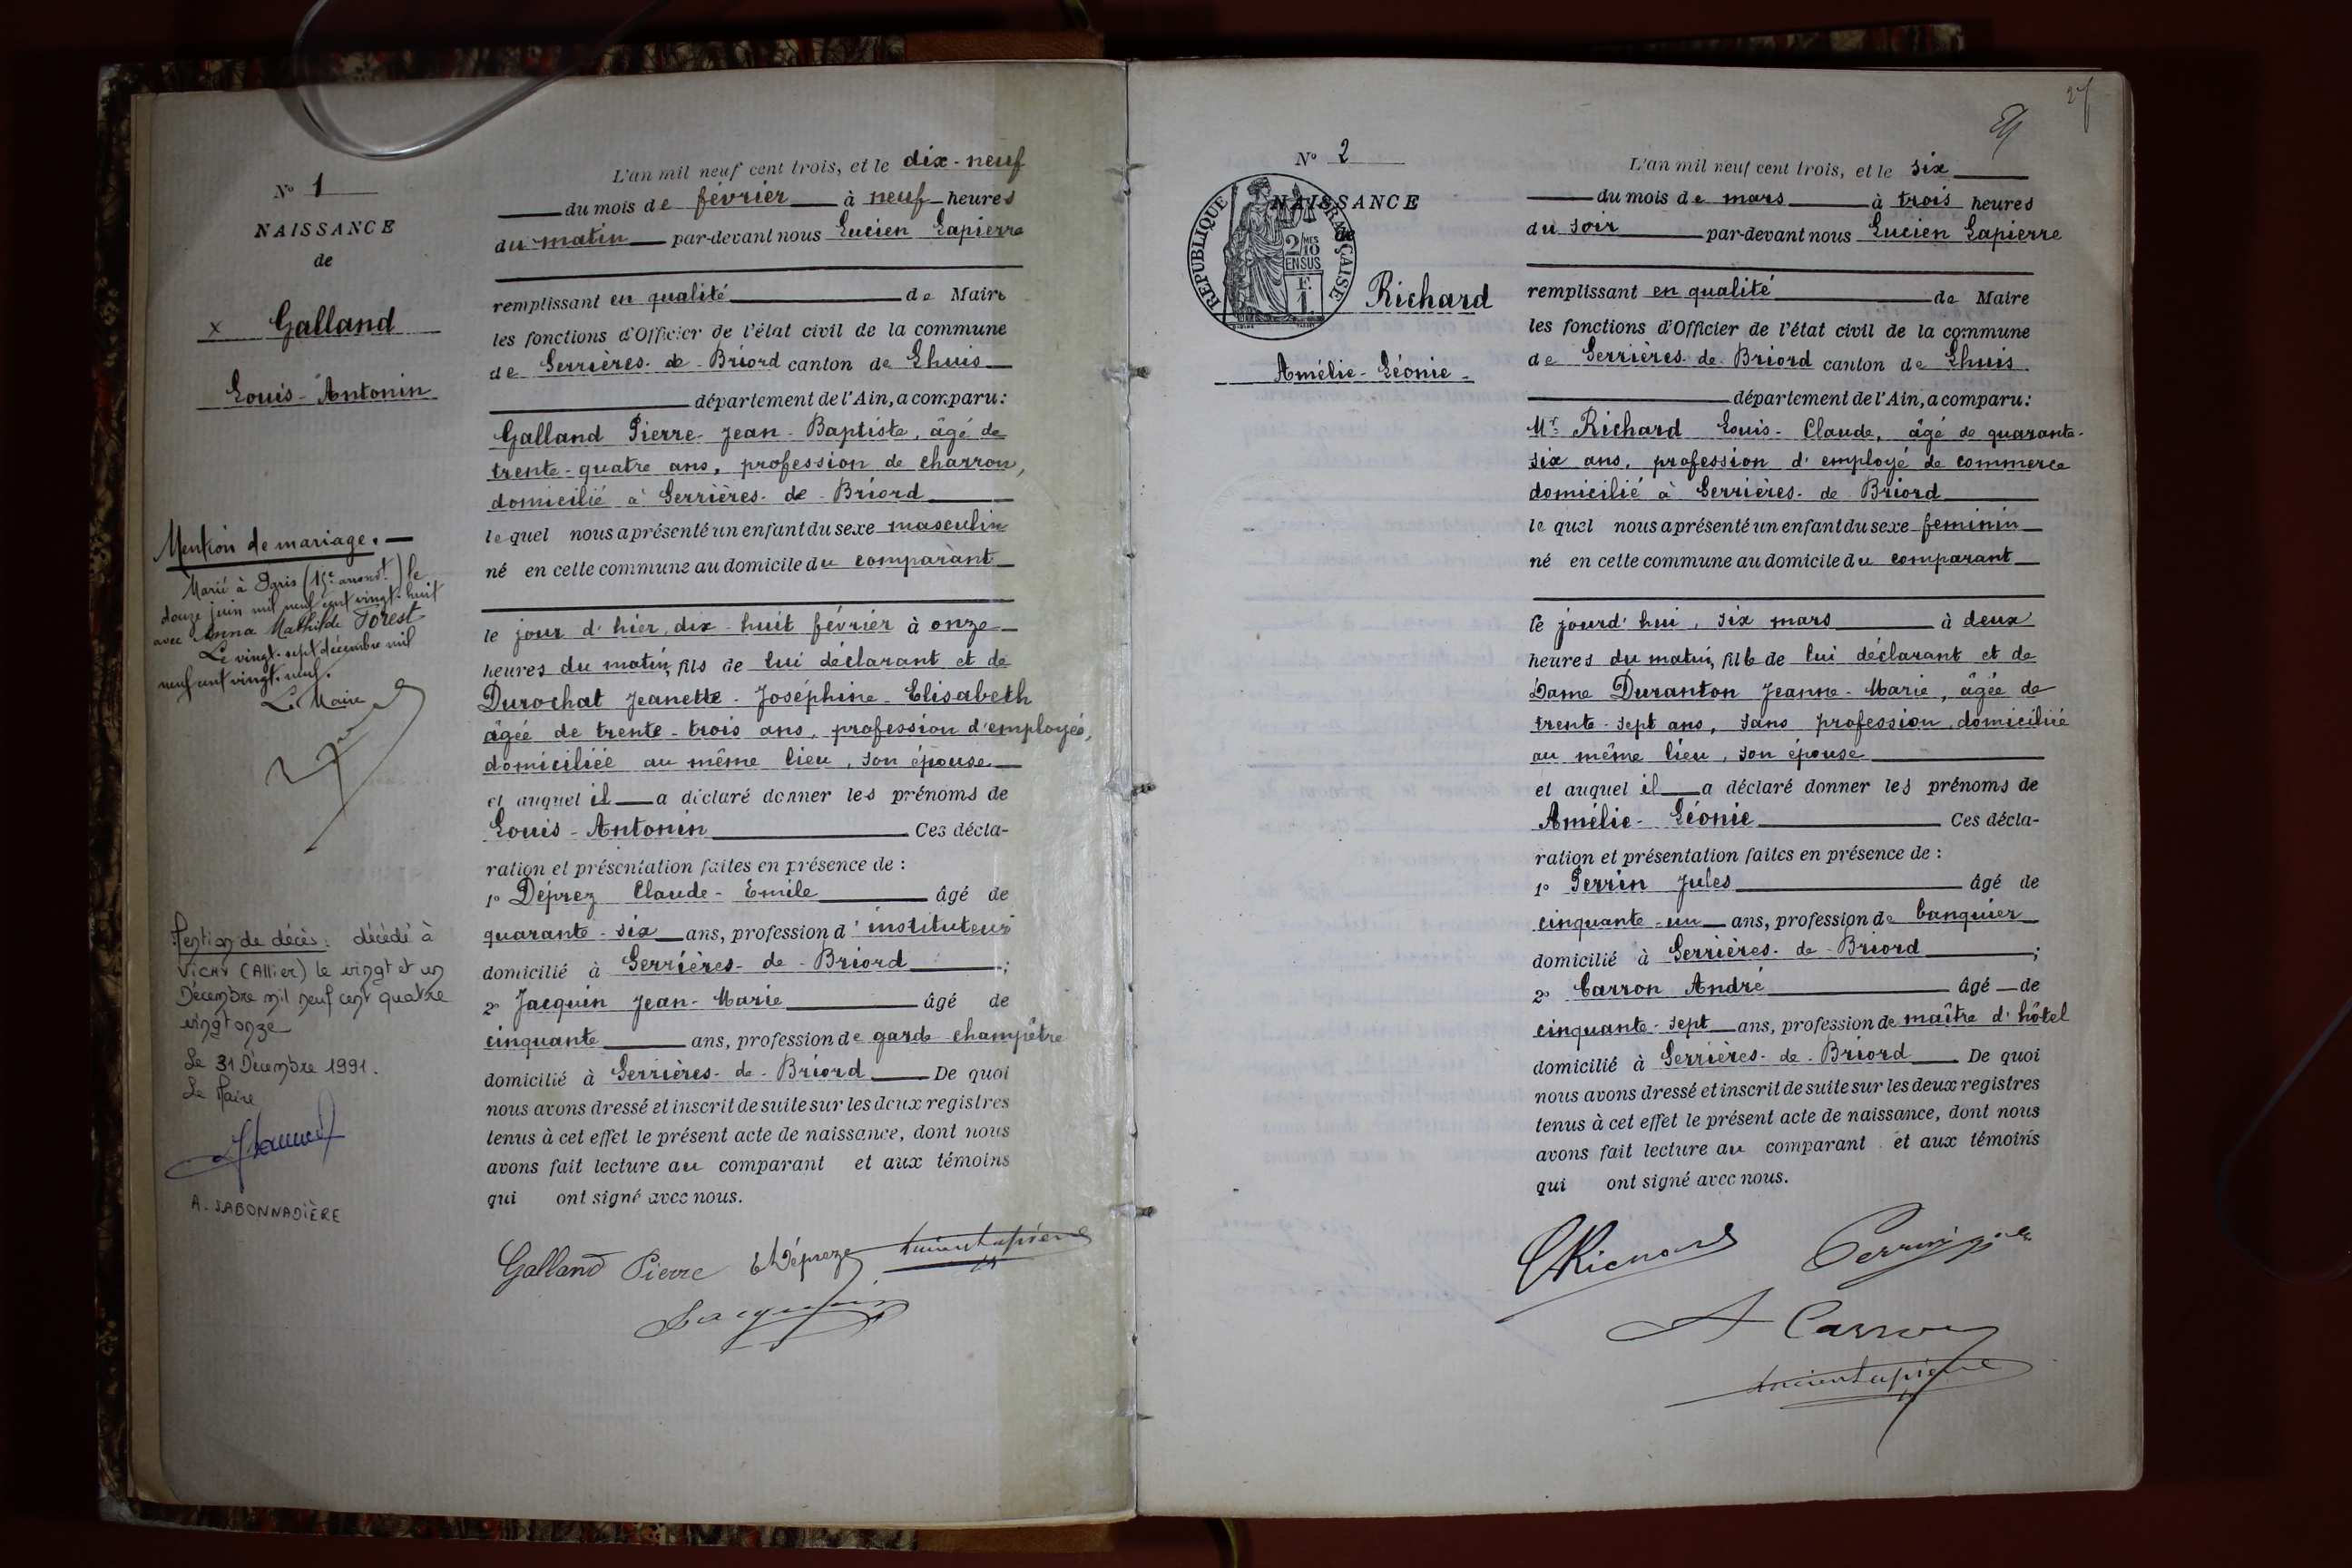 N° 1
NAISSANCE
de
x Galland
Louis-Antonin
Mention de mariage.—
Marié à Paris (15e arrondt) le
douze juin mil neuf cent vingt-huit
avec Anna Mathilde Forest
Le vingt-sept décembre mil
neuf cent vingt-neuf.
Le Maire
Mention de décès: décédé à
VICHY (Allier) le vingt et un
Décembre mil neuf cent quatre
vingt onze
Le 31 Décembre 1991.
Le Maire
A. SABONNADIÈRE
L'an mil neuf cent trois, et le dix-neuf
du mois de février à neuf heures
du matin par-devant nous Lucien Lapierre
remplissant en qualité de Maire
les fonctions d'Officier de l'état civil de la commune
de Serrières-de-Briord canton de Lhuis
département de l'Ain, a comparu:
Galland Pierre-Jean-Baptiste, âgé de
trente-quatre ans, profession de charron,
domicilié à Serrières-de-Briord
lequel nous a présenté un enfant du sexe masculin
né en cette commune au domicile du comparant
le jour d'hier, dix-huit février à onze
heures du matin, fils de lui déclarant et de
Durochat Jeanette-Joséphine-Elisabeth
âgée de trente-trois ans, profession d'employée,
domiciliée au même lieu, son épouse
et auquel il a déclaré donner les prénoms de
Louis-Antonin Ces décla-
ration et présentation faites en présence de:
1° Déprez Claude-Emile âgé de
quarante-six ans, profession d'instituteur
domicilié à Serrières-de-Briord;
2° Jacquin Jean-Marie âgé de
cinquante ans, profession de garde-champêtre
domicilié à Serrières-de-Briord De quoi
nous avons dressé et inscrit de suite sur les deux registres
tenus à cet effet le présent acte de naissance, dont nous
avons fait lecture au comparant et aux témoins
qui ont signé avec nous.
Galland Pierre Déprez Lucien Lapierre
Jacquin
27
N° 2
NAISSANCE
de
RÉPUBLIQUE FRANÇAISE
2/10 MES
EN SUS
F.
1
Richard
Amélie-Léonie-
L'an mil neuf cent trois, et le six
du mois de mars à trois heures
du soir par-devant nous Lucien Lapierre
remplissant en qualité de Maire
les fonctions d'Officier de l'état civil de la commune
de Serrières-de-Briord canton de Lhuis.
département de l'Ain, a comparu:
Mr Richard Louis-Claude, âgé de quarante-
six ans, profession d'employé de commerce
domicilié à Serrières-de-Briord
lequel nous a présenté un enfant du sexe feminin
né en cette commune au domicile du comparant
le jourd'hui, six mars à deux
heures du matin, fille de lui déclarant et de
Dame Duranton Jeanne-Marie, âgée de
trente-sept ans, sans profession, domiciliée
au même lieu, son épouse
et auquel il a déclaré donner les prénoms de
Amélie-Léonie Ces décla-
ration et présentation faites en présence de:
1° Perrin Jules âgé de
cinquante-un ans, profession de banquier
domicilié à Serrières-de-Briord;
2° Carron André âgé de
cinquante-sept ans, profession de maître d'hôtel
domicilié à Serrières-de-Briord De quoi
nous avons dressé et inscrit de suite sur les deux registres
tenus à cet effet le présent acte de naissance, dont nous
avons fait lecture au comparant et aux témoins
qui ont signé avec nous.
Richard Perrin
A Carron
Lucien Lapierre